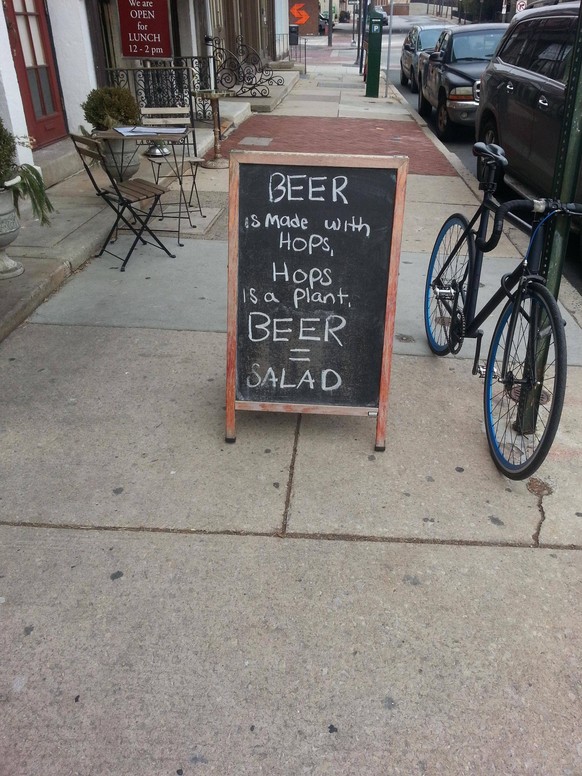 We are
OPEN
for
LUNCH
12 - 2 pm
BEER
is made with
HOPS,
HOPS
is a plant.
BEER
=
SALAD